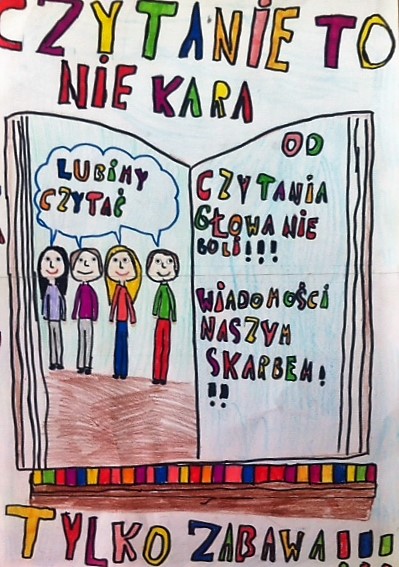 CZYTANIE TO
NIE KARA
LUBIMY
CZYTAĆ
OD
CZYTANIA
GŁOWA NIE
BOLI!!!
WIADOMOŚCI
NASZYM
SKARBEM!
!!
TYLKO ZABAWA!!!